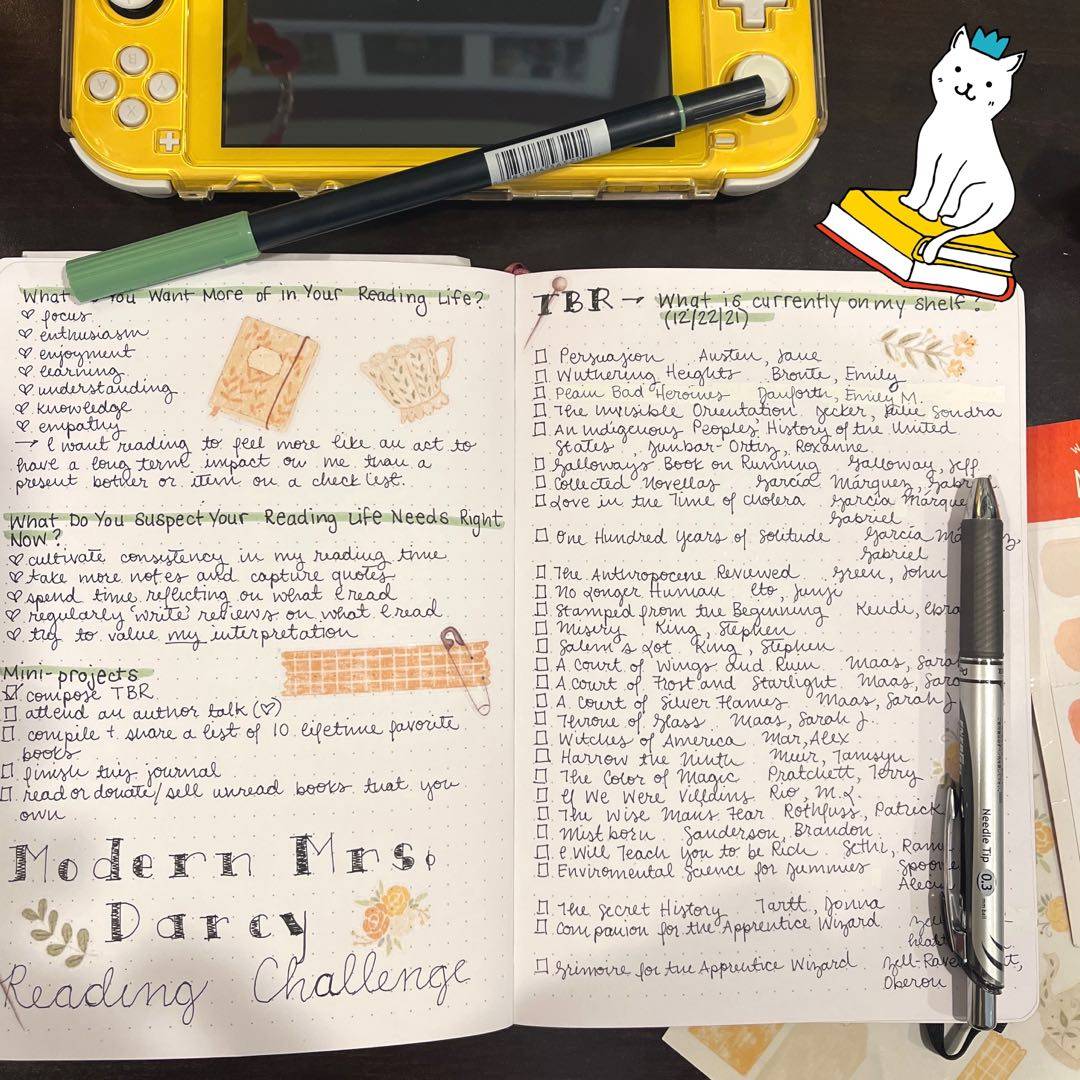 B
A
Y
X
What You Want More of in Your Reading Life?
focus
enthusiasm
enjoyment
learning
understanding
knowledge
empathy
→ I want reading to feel more like an act to
have a long term impact on me than a
present bother or item on a check list.
What Do You Suspect Your Reading Life Needs Right
Now?
cultivate consistency in my reading time
take more notes and capture quotes
spend time reflecting on what I read
regularly 'write' reviews on what I read
try to value my interpretation
Mini-projects
compose TBR
attend an author talk (♡)
compile + share a list of 10 lifetime favorite
books
finish this journal
read or donate/sell unread books that you
own
Modern Mrs.
Darcy
Reading Challenge
TBR → What is currently on my shelf?
(12/22/21)
Persuasion Austen, Jane
Wuthering Heights Bronte, Emily
Plain Bad Heroines Danforth, Emily M.
The Invisible Orientation Decker, Julie Sondra
An Indigenous Peoples' History of the United
States, Dunbar-Ortiz, Roxanne
Galloways Book on Running Galloway, Jeff
Collected Novellas García Márquez, Gabr
Love in the Time of Cholera García Márque
Gabriel
One Hundred Years of Solitude García Má
Gabriel
The Anthropocene Reviewed Green, John
No Longer Human Ito, Junji
Stamped from the Beginning Kendi, Ibra
Misery King, Stephen
Salem's Lot King, Stephen
A Court of Wings and Ruin Maas, Sara
A Court of Frost and Starlight Maas, Sara
A Court of Silver Flames Maas, Sarah J
Throne of Glass Maas, Sarah J.
Witches of America Mar, Alex
Harrow the Ninth Muir, Tamsyn
The Color of Magic Pratchett, Terry
If We Were Villains Rio, M.L.
The Wise Mans Fear Rothfuss, Patrick
Mistborn Sanderson, Brandon
I Will Teach You to be Rich Sethi, Ram
Enviromental Science for Dummies Spoo
Alecia
The Secret History Tartt, Donna
Companion for the Apprentice Wizard Zell
Grimoire for the Apprentice Wizard Zell-Rave
Oberon
Needle Tip 0.3